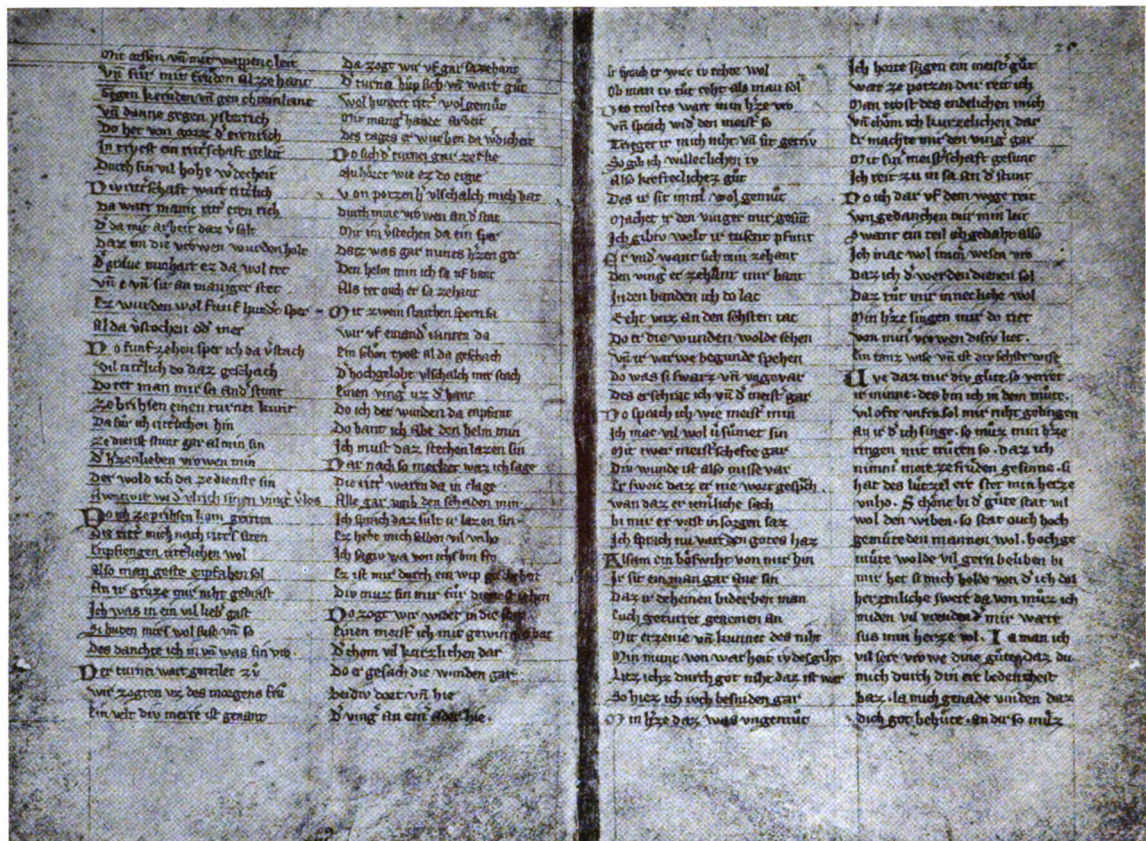 Mit orssen vn̄ mit wappenc̄leit
Vn̄ fůr mit frůden al ze hant
Gegen kernden vn̄ gen chreinlant
Vn̄ danne gegen ysterrich
Do het von gorze d' erenrich
In tryest ein rit'schaft geleit
Durch sin vil hohe w'decheit
Div rit'schaft wart ritt'lich
Da wart manic ritt' eren rich
D' da mit arbeit daz v'salt
Daz in die vrowen wurden holt
D' grave meinhart ez da wol tet
Vn̄ e vn̄ sit an maniger stet
Ez wurden wol funf hund't sper
Al da v'stochen od' mer
Do funfzehen sper ich da v'stach
Vil ritt'lich do daz geschach
Do tet man mir sa and' stunt
Ze brihsen einen turnei kunt
Da fůr ich ritt'lichen hin
Ze dienst stunt gar al min sin
D' h'zenlieben vrowen min
Der wold ich da ze dienste sin
Aventivre wi d' vlrich sinen ving' v'los
Do ich ze prihsen kom geriten
Die ritt' mich nach ritt's siten
Enpfiengen ritt'lichen wol
Also man geste enpfahen sol
An ir grůze mir niht gebrast
Ich was in ein vil lieb' gast
Si buten mirs wol sust vn̄ so
Des danchte ich in vn̄ was sin vro
Der turnei wart geteilet zů
Wir zogten vz des morgens frů
Ein velt div merre ist genant
Da zogt wir vf gar sa zehant
D' turnei hůp sich vn̄ wart gůt
Wol hundert ritt' wol gemůt
Mit mang' hande arbeit
Des tages erwurben da w'dicheit
Do sich d' turnei gar zerlie
Nu hoeret wie ez do ergie
Von potzen h' vlschalch mich bat
Durch mine vrowen an d' stat
Mit im v'stechen da ein sper
Daz was gar mines h'zen ger
Den helm min ich sa uf bant
Als tet ouch er sa zehant
Mit zwein starchen spern sa
Wir vf einand' ranten da
Ein schön tyost al da geschach
D' hochgelobt vlschalch mir stach
Einen ving' uz d' hant
Do ich der wunden da enpfant
Do bant ich abe den helm min
Ich must daz stechen lazen sin
Dar nach so mercket waz ich sage
Die ritt' waren da in clage
Alle gar umb den schaden min
Ich sprach daz sult ir lazen sin
Ez hebe mich selben vil unho
Ich sag iv wa von ich's bin fro
Ez ist mir durch ein wip geschehen
Div muz sin mir fůr dienst iehen
Do zogt wir wider in die stat
Einen meist' ich mir gewinnen bat
D' chom vil kurzlichen dar
Do er gesach die wunden gar
Beidiv dort vn̄ hie
D' ving' an ein' ader hie
26
Er sprach er wirt iv rehte wol
Ob man iv tůt reht als man sol
Des trostes wart min h'ze vro
Vn̄ sprach wid' den meist' so
Trieget ir mich niht vn̄ sit getriv
So gib ich willeclichen iv
Also kreftechlichez gůt
Des ir sit imm' wol gemůt
Machet ir den vinger mir gesůnt
Ich gib iv welt ir tusent pfunt
Er vnd' want sich min zehant
Den ving' er zehant mir bant
In den banden ich do lac
Reht vnz an den sehsten tac
Do er die wunden wolde sehen
Vn̄ ir varwe begunde spehen
Do was si swarz vn̄ ungevar
Des erschrac ich vn̄ d' meist' gar
Do sprach ich wie meist' min
Ich mac vil wol v'sůmet sin
Mit iwer meist'schefte gar
Div wunde ist also misse var
Er sweic daz er nie wort gesp'ch
Wan daz er iemerliche sach
Bi mir er vast in sorgen saz
Ich sprach nu vart den gotes haz
Als am ein boswiht von mir hin
Ir sit ein man gar ane sin
Daz ir deheinen biderben man
Euch getůrret genemen an
Mit erzenie vn̄ kunnet des niht
Min munt von warheit iv des giht
Liez ichz durch got niht daz ist war
So hiez ich iwch beschniden gar
Min h'ze daz was ungemůt
Ich horte sagen ein meist' gůt
Wær ze potzen dar reit ich
Man trost des endelichen mich
Vn̄ chōm ich kurzelichen dar
Er machte mir den ving' gar
Mit sin' meist'schaft gesunt
Ich reit zu im sa an d' stunt
Do ich dar vf dem wege reit
Von gedanchen mir min leit
Swant ein teil ich gedaht also
Ich mac wol imm' wesen vro
Daz ich d' werden dienen sol
Daz tůt mir innecliche wol
Min h'ze singen mir do riet
Von min' vrowen disiv liet
Ein tanz wise vn̄ ist div sehste wise
Awe daz mir div gůte so verret
ir minne. des bin ich in dem můte
vil ofte unfro sol mir niht gelingen
an ir d' ich singe. so můz min h'ze
ringen mit trůren so. daz ich
nimm' mere ze fröuden gesinne. si
hat des lůtzel ere stet min herze
unho. Schöne bi d' gůte stat vil
wol den wiben. so stat ouch hoch
gemůte den mannen wol. hochge
můte wolde vil gern beliben bi
mir het si mich holde von d' ich dol
herzenliche swere da von můz ich
miden vil vreuden d' mir wære
sus min herze vol. Ia man ich
vil sere vrowe dine gůte. daz du
mich durch din ere bedenchest
baz. la mich genade vinden daz
dich got behůte. an du so můz